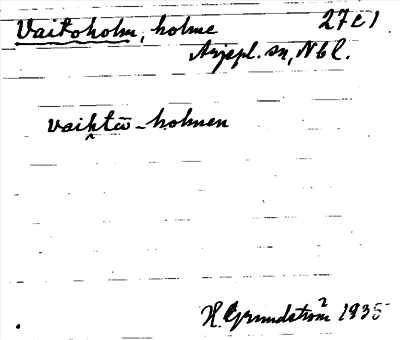 Vaitoholm, holme 27c1
Arjepl. sn, Nbl.
vaiḫtū-holmen
H. Grundström 1935